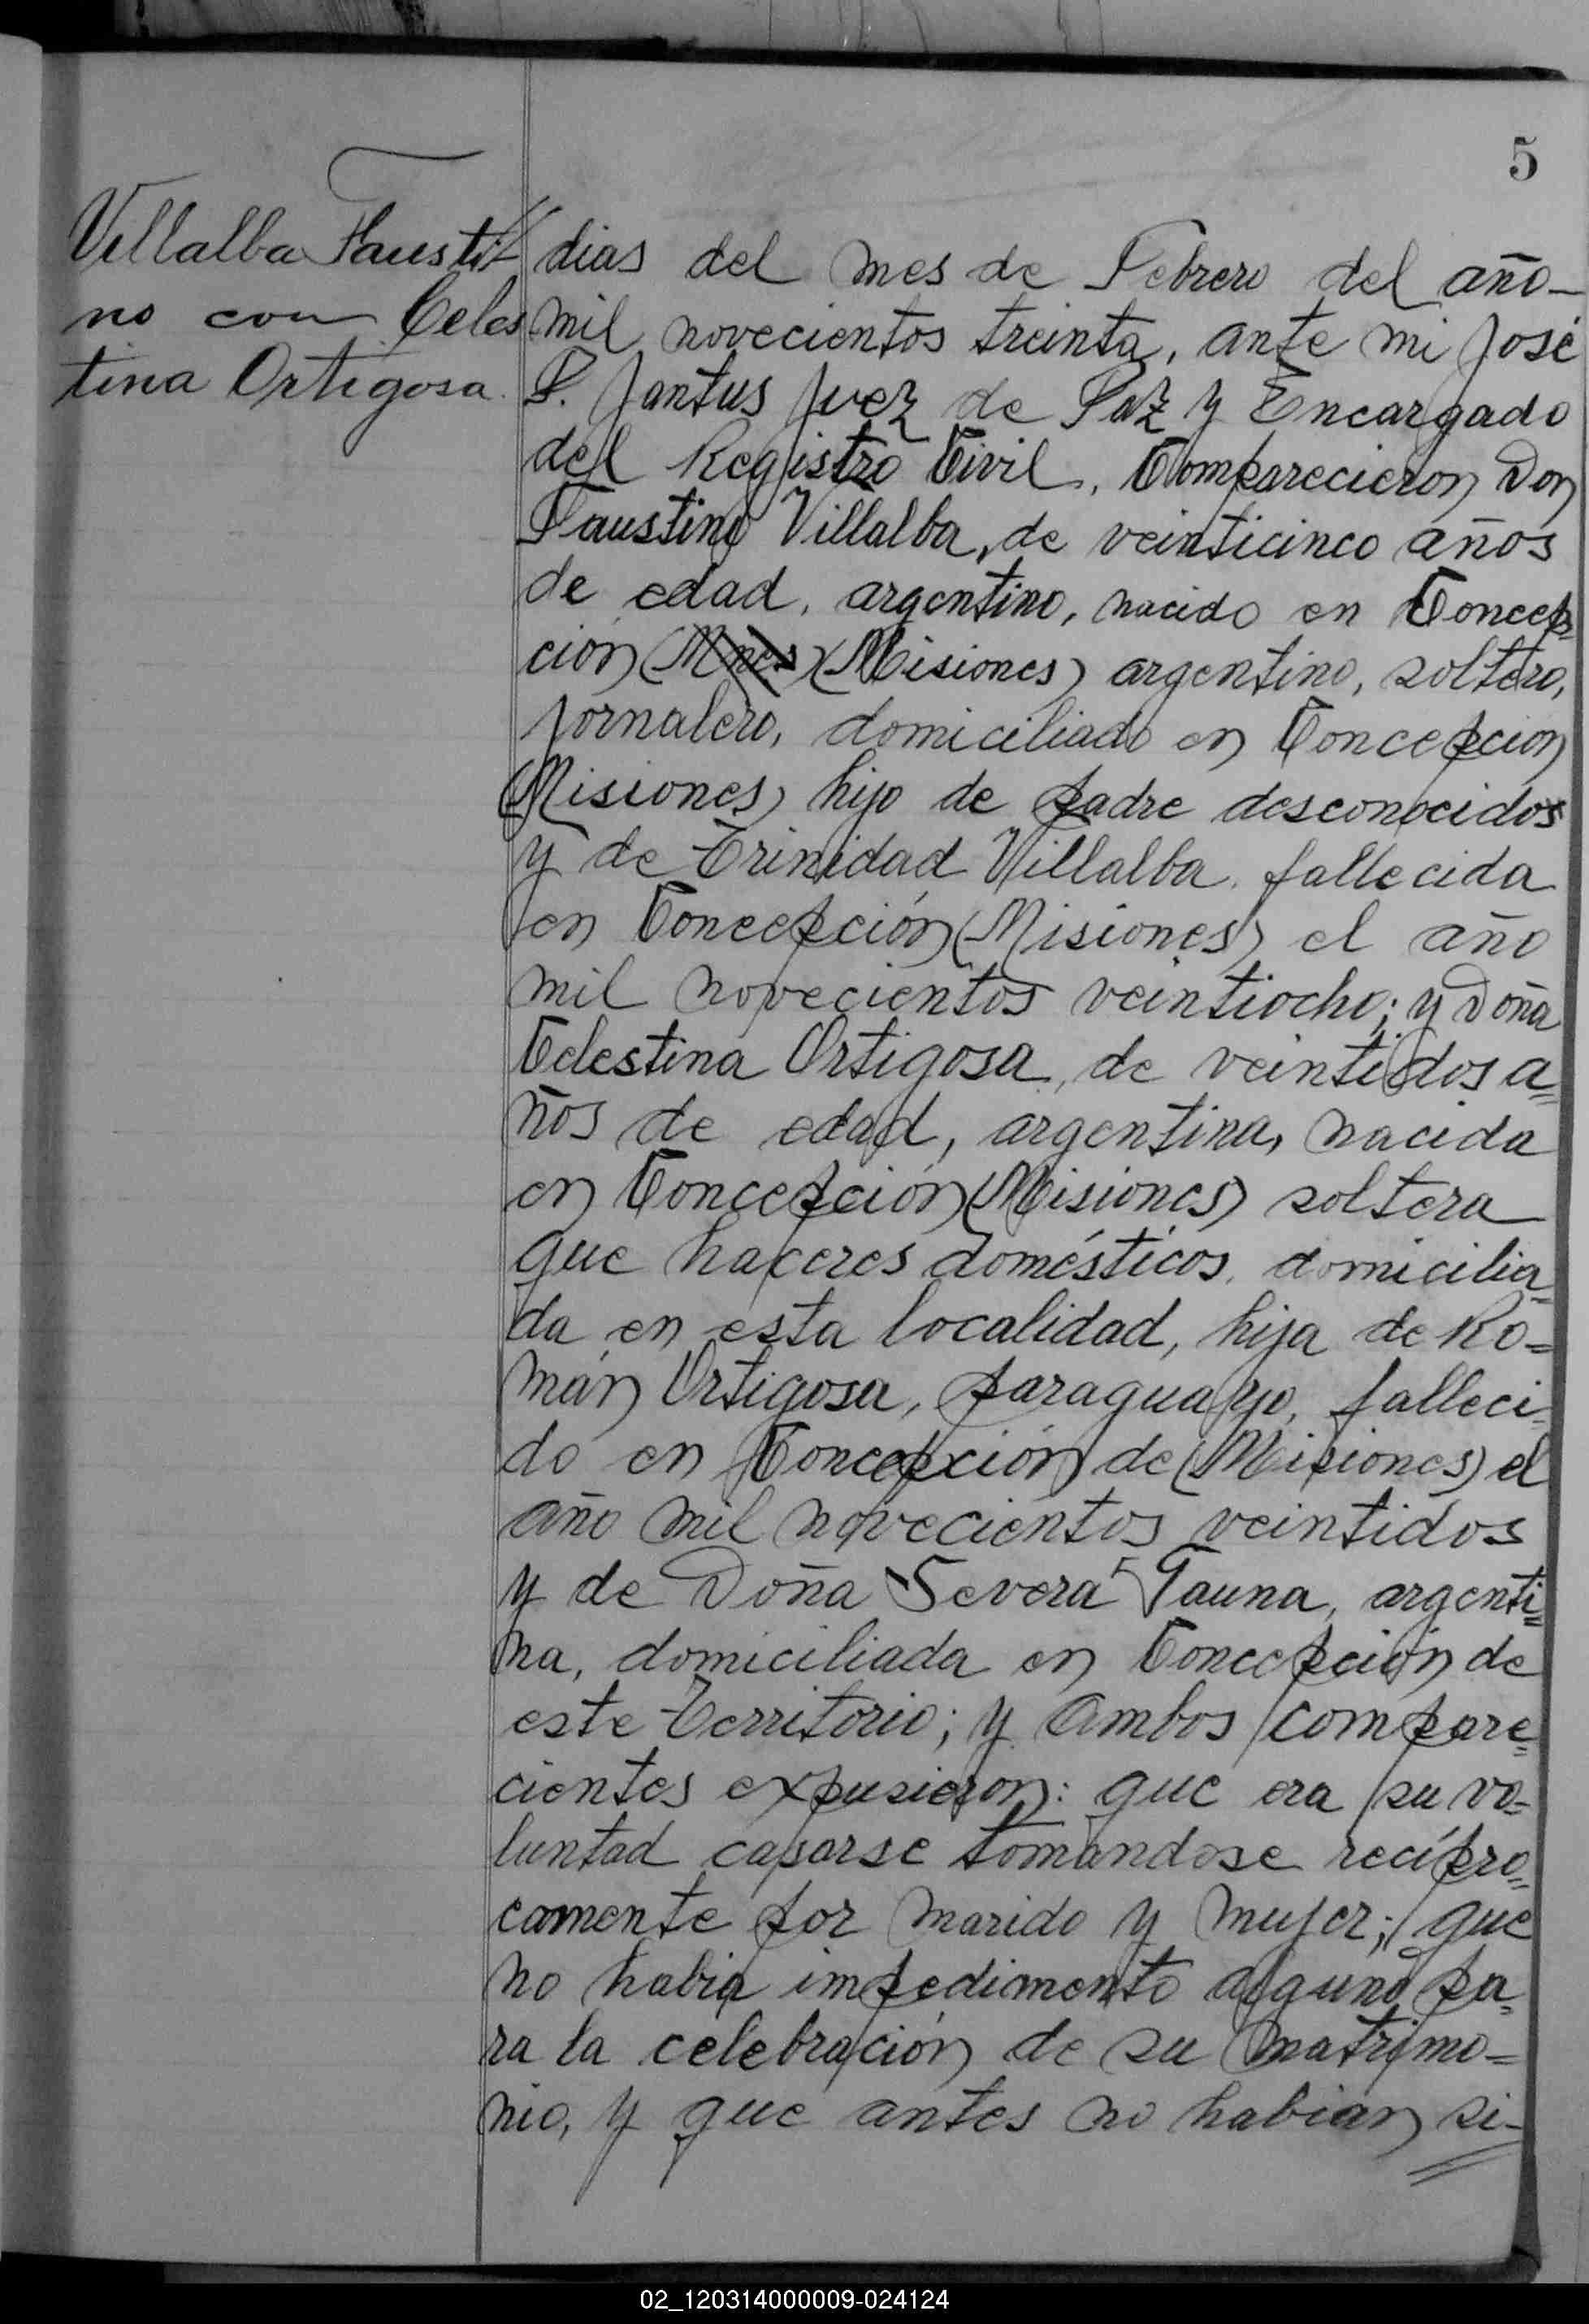 5
Villalba Fausti-
no con Celes
tina Ortigosa.
dias del mes de Febrero del año-
mil novecientos treinta, ante mi José
P. Jantus Juez de Paz y Encargado
del Registro Civil, Comparecieron Don
Faustino Villalba, de veinticinco años
de edad, argentino, nacido en Concep=
ción (Mnes) (Misiones) argentino, soltero,
jornalero, domiciliado en Concepción
(Misiones) hijo de padre desconocidos
y de Trinidad Villalba, fallecida
en Concepción (Misiones) el año
mil novecientos veintiocho; y Doña
Celestina Ortigosa, de veintidos a=
ños de edad, argentina, nacida
en Concepción (Misiones) soltera
que haceres domésticos, domicilia=
da en esta localidad, hija de Ro=
mán Ortigosa, paraguayo, falleci-
do en Concepción de (Misiones) el
año mil novecientos veintidos
y de Doña Severa Tauna, argenti=
na, domiciliada en Concepción de
este Territorio; y ambos compare=
cientes expusieron: que era su vo=
luntad casarse tomándose recípro=
camente por marido y mujer; que
no había impedimento alguno pa=
ra la celebración de su matrimo=
nio, y que antes no habian si=
02_120314000009-024124